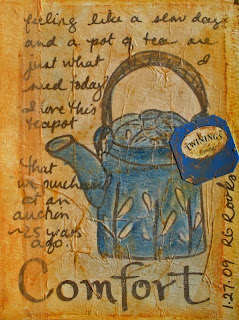 feeling like a slow day
and a pot of tea are
just what I
need today!
I love this
teapot
that
we purchased
at an
auction
~25 years
ago.
TWININGS
Comfort
1-27-09 RG Rooks